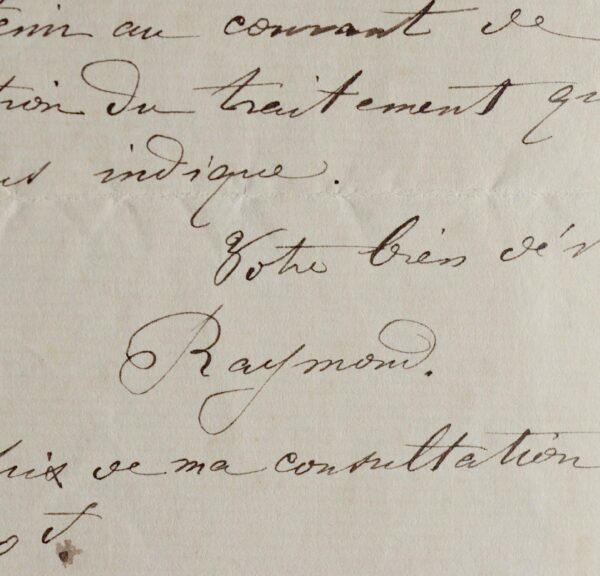 tenir au courant de
tion du traitement qu
us indique.
Votre bien dév
Raymond.
prix de ma consultation
0 f.